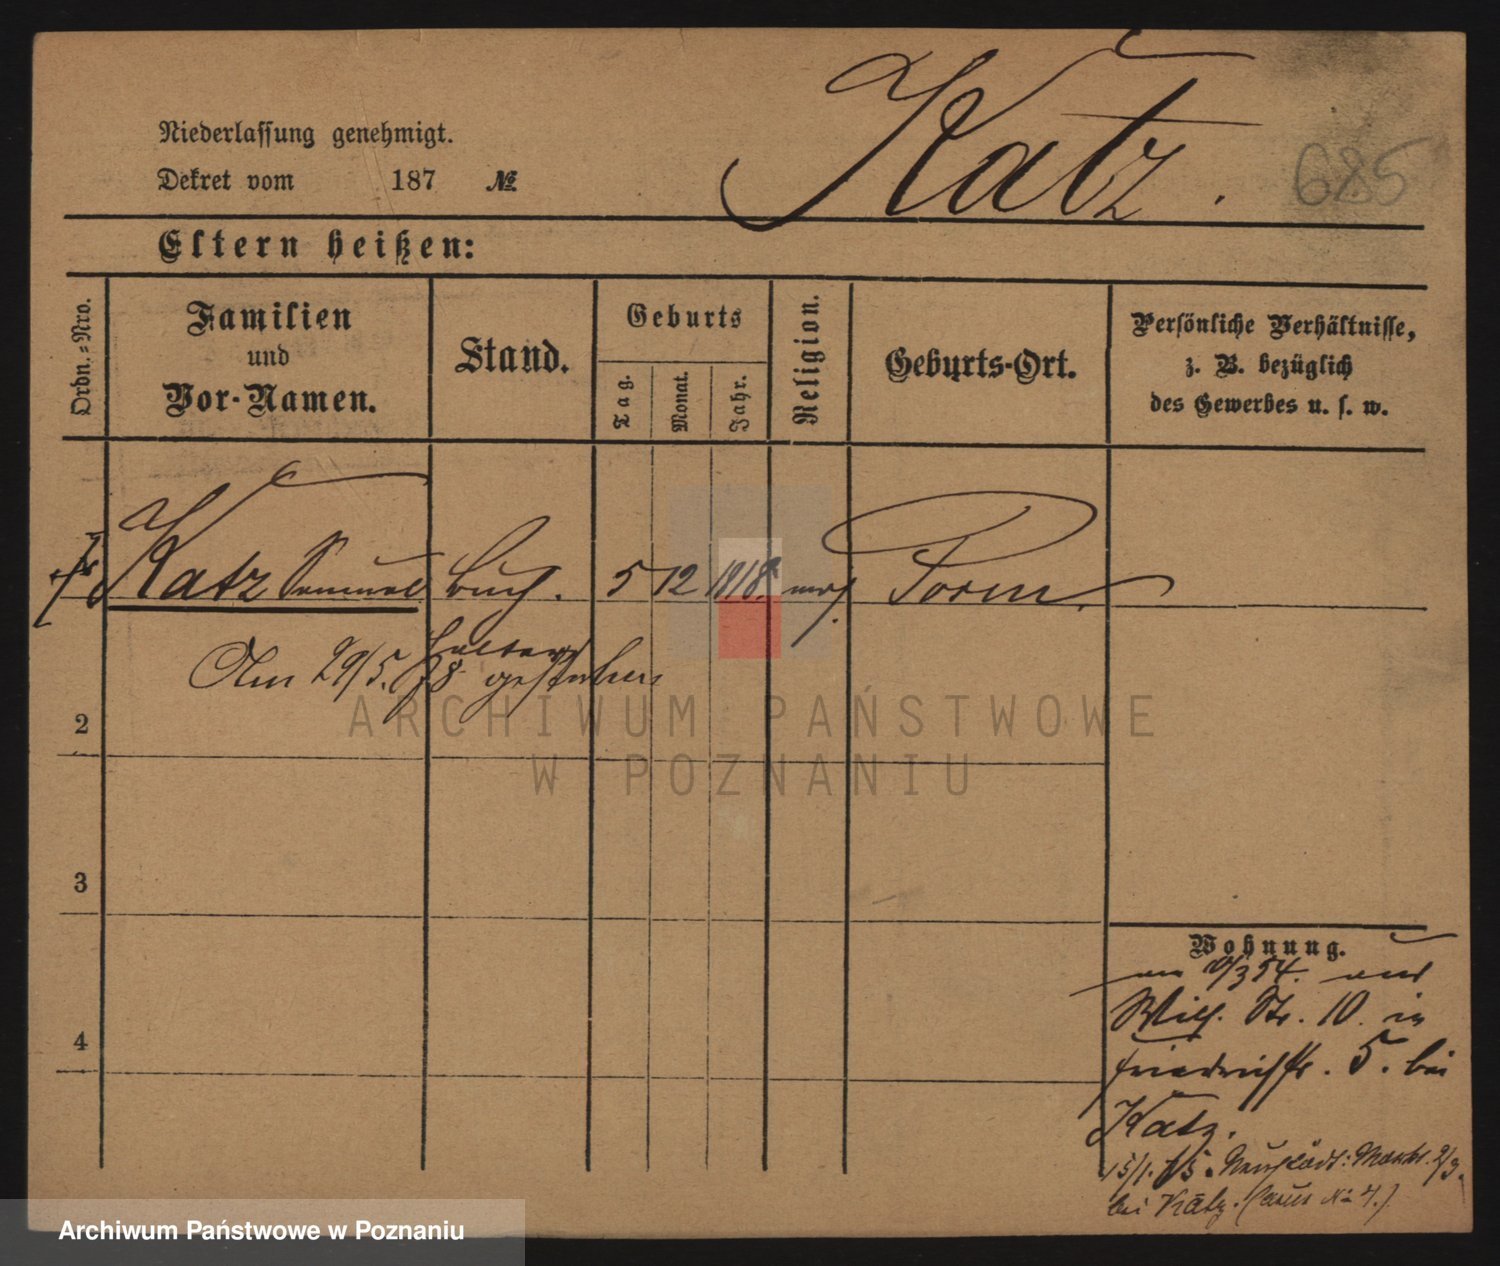 Katz.
685
Niederlassung genehmigt.
Dekret vom 187 №
Eltern heißen:
Ordn.=Nro.
Familien
und
Vor-Namen.
Stand.
Geburts
Tag.
Monat.
Jahr.
Religion.
Geburts-Ort.
Persönliche Verhältnisse,
z. B. bezüglich
des Gewerbes u. s. w.
Katz Samuel 5 12 1818. mos.
Am 29/5. 78 gestorben
2
3
4
Wohnung.
Wilh. Str. 10. in
Friedrichstr. 5. bei
Katz.
15/1. 75. Neustädt: Markt.
bei Katz. (aus № 4.)
ARCHIWUM PAŃSTWOWE
W POZNANIU
Archiwum Państwowe w Poznaniu